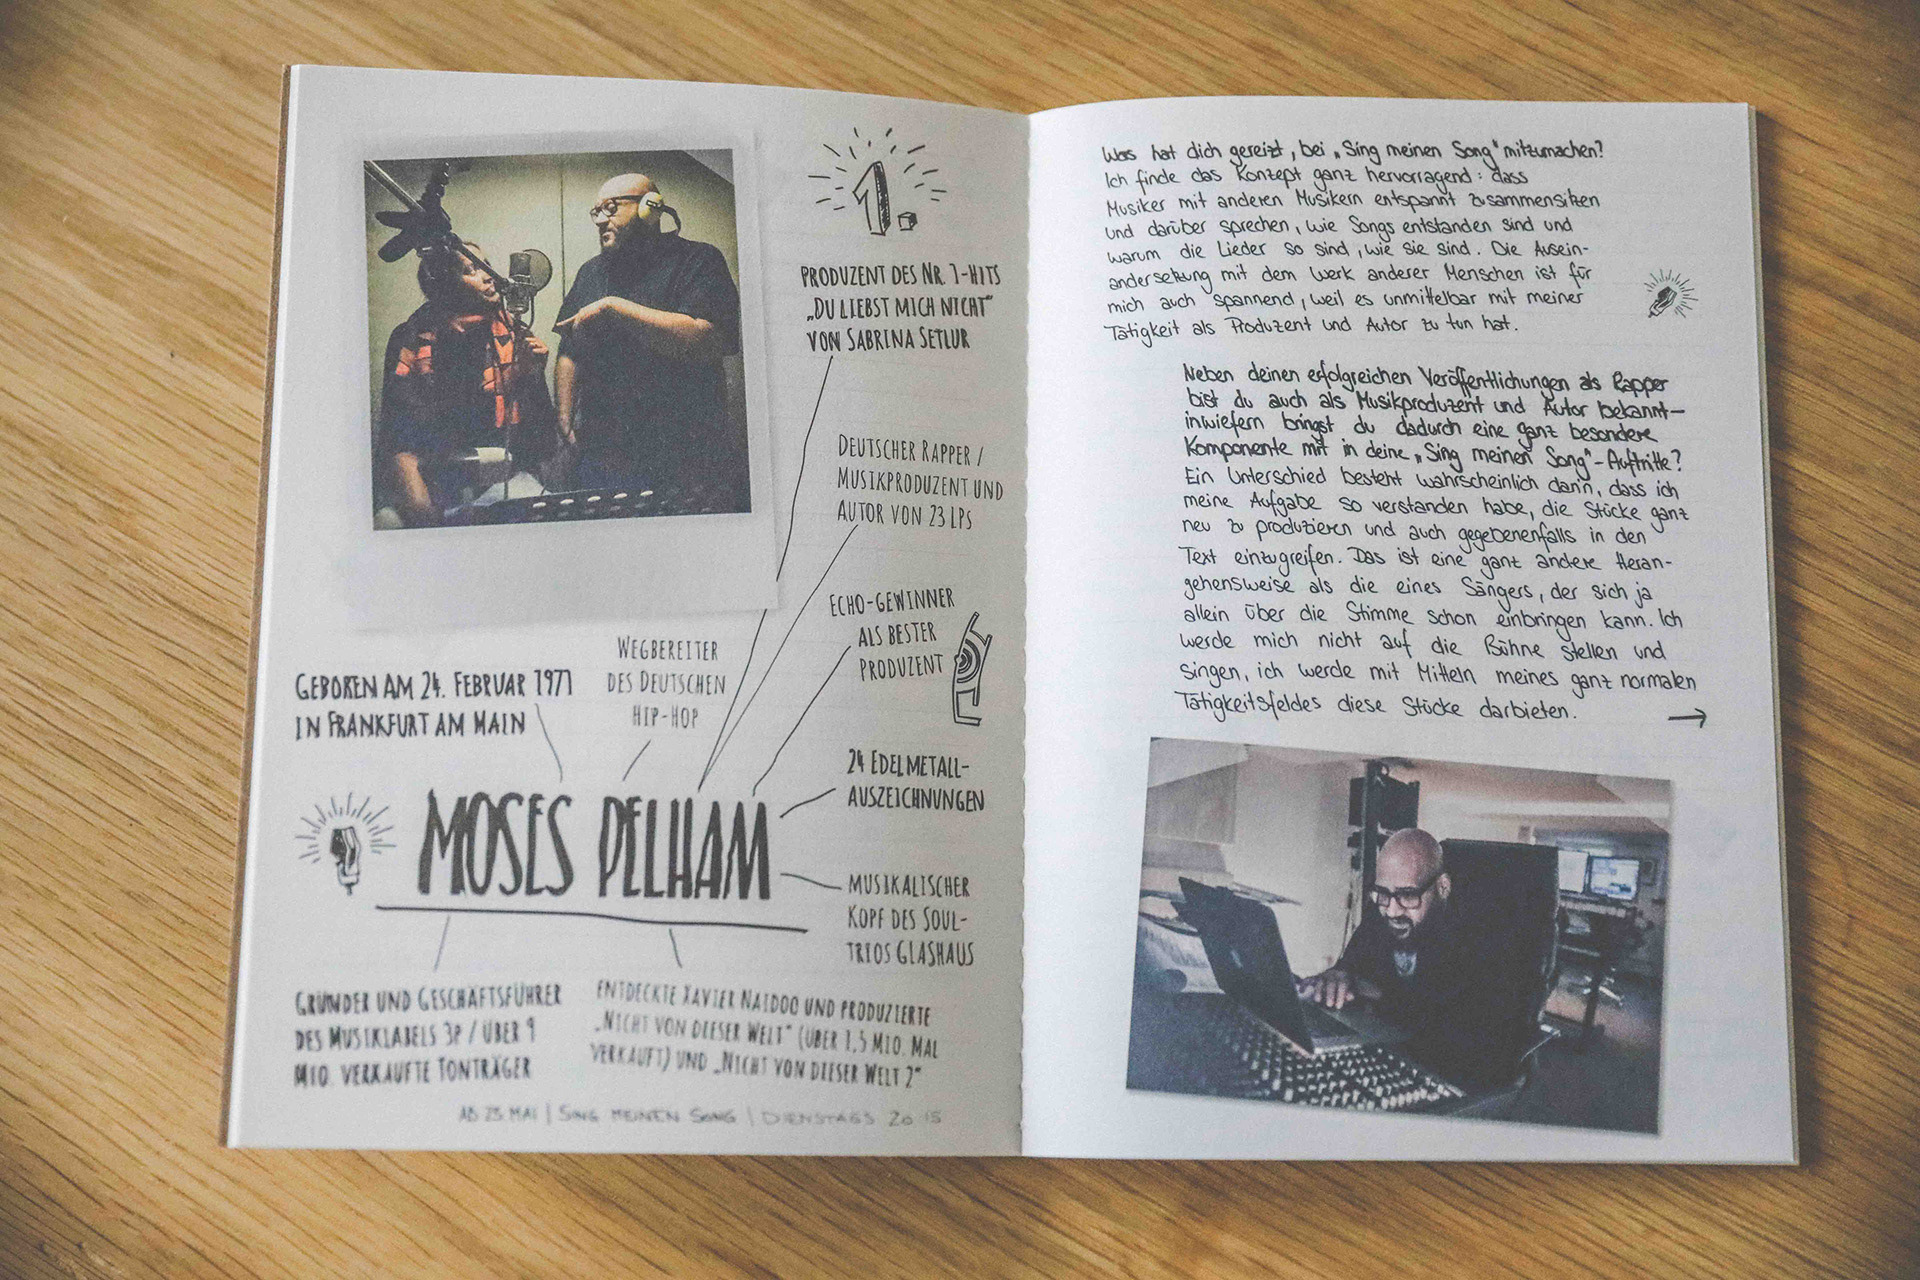 1.
PRODUZENT DES NR. 1-HITS
„DU LIEBST MICH NICHT“
VON SABRINA SETLUR
DEUTSCHER RAPPER /
MUSIKPRODUZENT UND
AUTOR VON 23 LPS
ECHO-GEWINNER
ALS BESTER
PRODUZENT
WEGBEREITER
DES DEUTSCHEN
HIP-HOP
GEBOREN AM 24. FEBRUAR 1971
IN FRANKFURT AM MAIN
24 EDELMETALL-
AUSZEICHNUNGEN
MOSES PELHAM
MUSIKALISCHER
KOPF DES SOUL-
TRIOS GLASHAUS
GRÜNDER UND GESCHÄFTSFÜHRER
DES MUSIKLABELS 3P / ÜBER 9
MIO. VERKAUFTE TONTRÄGER
ENTDECKTE XAVIER NAIDOO UND PRODUZIERTE
„NICHT VON DIESER WELT“ (ÜBER 1,5 MIO. MAL
VERKAUFT) UND „NICHT VON DIESER WELT 2“
AB 23. MAI | SING MEINEN SONG | DIENSTAGS 20 15
Was hat dich gereizt, bei „Sing meinen Song“ mitzumachen?
Ich finde das Konzept ganz hervorragend: dass
Musiker mit anderen Musikern entspannt zusammensitzen
und darüber sprechen, wie Songs entstanden sind und
warum die Lieder so sind, wie sie sind. Die Ausein-
andersetzung mit dem Werk anderer Menschen ist für
mich auch spannend, weil es unmittelbar mit meiner
Tätigkeit als Produzent und Autor zu tun hat.
Neben deinen erfolgreichen Veröffentlichungen als Rapper
bist du auch als Musikproduzent und Autor bekannt –
inwiefern bringst du dadurch eine ganz besondere
Komponente mit in deine „Sing meinen Song“-Auftritte?
Ein Unterschied besteht wahrscheinlich darin, dass ich
meine Aufgabe so verstanden habe, die Stücke ganz
neu zu produzieren und auch gegebenenfalls in den
Text einzugreifen. Das ist eine ganz andere Heran-
gehensweise als die eines Sängers, der sich ja
allein über die Stimme schon einbringen kann. Ich
werde mich nicht auf die Bühne stellen und
singen, ich werde mit Mitteln meines ganz normalen
Tätigkeitsfeldes diese Stücke darbieten.